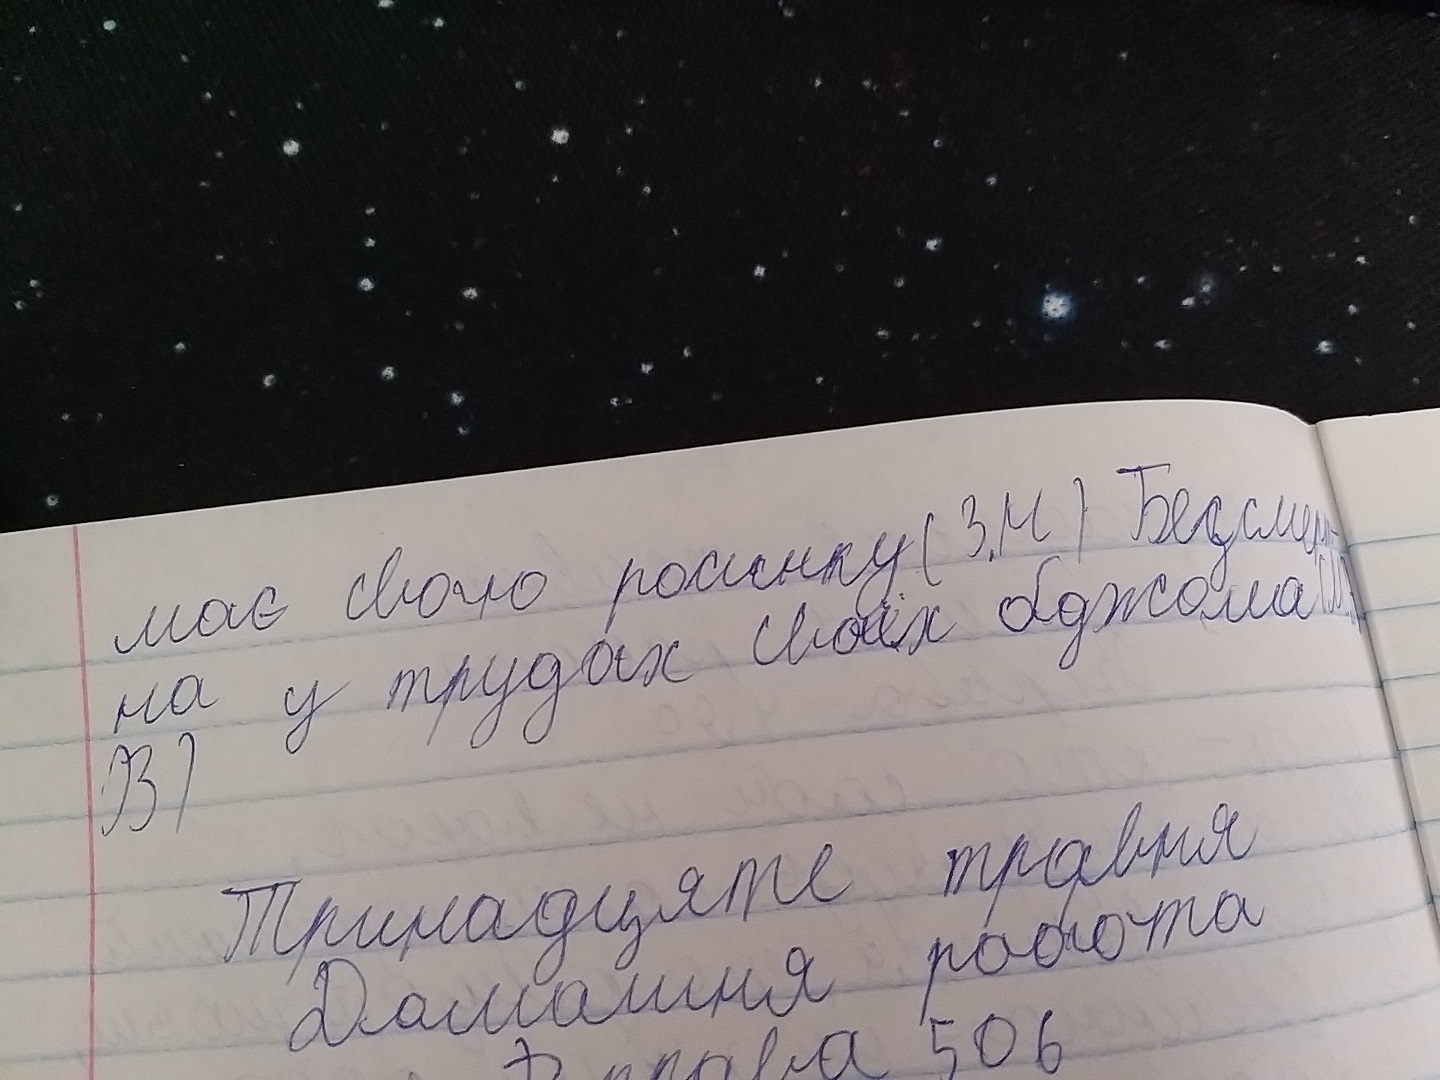 має свою росинку (З.М) Безсмерт-
на у трудах своїх бджола
В)
Тринадцяте травня
Домашня робота
Вправа 506